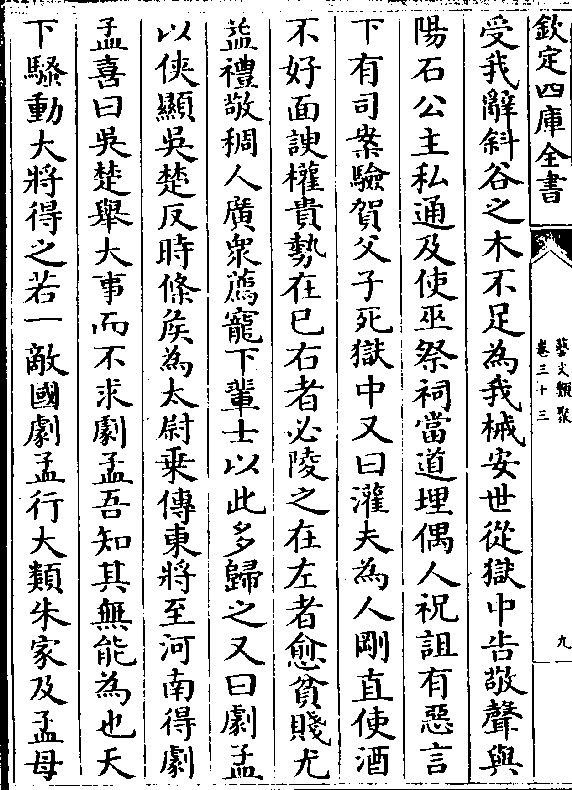 欽定四庫全書
藝文類聚
卷三十三
九
受我辭斜谷之木不足為我械安世從獄中告敬聲與
陽石公主私通及使巫祭祠當道埋偶人祝詛有惡言
下有司案驗賀父子死獄中又曰灌夫為人剛直使酒
不好面諛權貴勢在已右者必陵之在左者愈貧賤尤
益禮敬稠人廣衆薦寵下輩士以此多歸之又曰劇孟
以俠顯吳楚反時條矦為太尉乗傳東將至河南得劇
孟喜曰吳楚舉大事而不求劇孟吾知其無能為也天
下騷動大將得之若一敵國劇孟行大類朱家及孟母